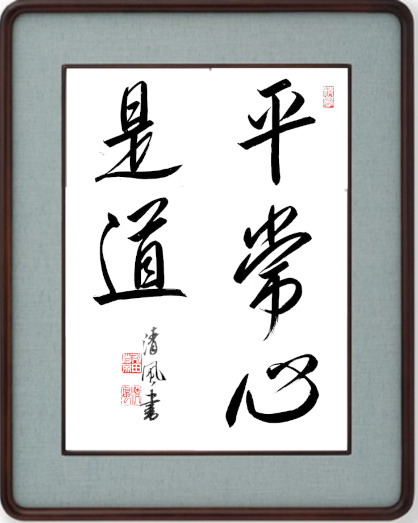 平常心
是道
清风書